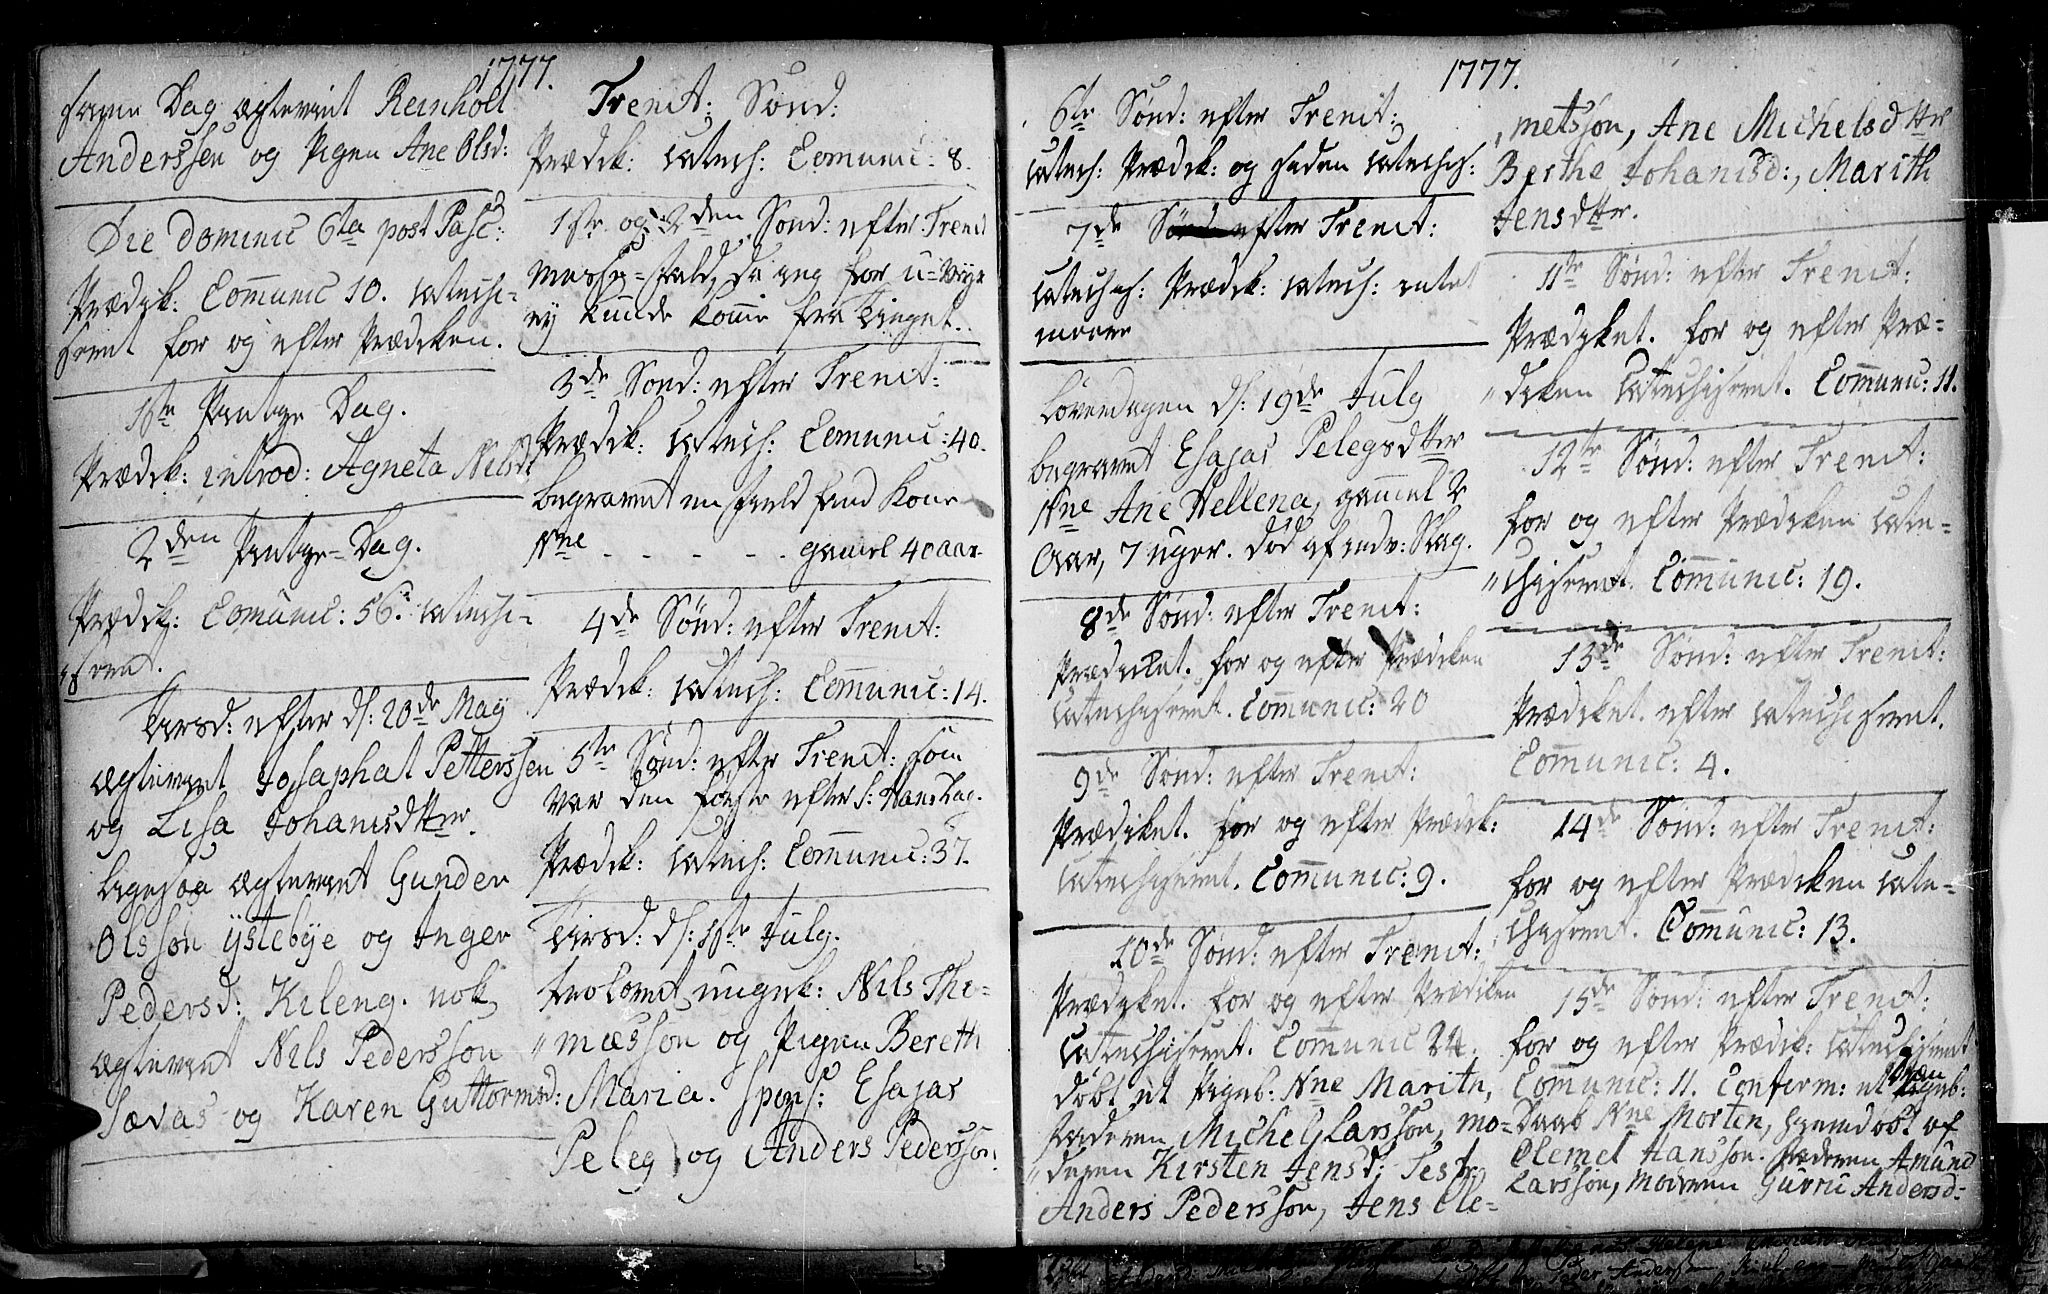 1777.
samme Dag ægteviet Reinholt
Anderssen og Pigen Ane Olsd:
Die Dominic 6ta post Pasc:
Prædik: Communic 10. catechi-
seret for og efter Prædiken.
1ste Pintze Dag.
Prædik: introd: Agneta Nilsd:
2den Pintze-Dag.
Prædik: Comunic: 56. catechi-
seret.
Tirsd: efter d: 20de Maÿ
ægteviet Josaphat Petterssen
og Lisa Johanisdtter.
ligesaa ægteviet Gunder
Olsson ÿstebÿe og Inger
Pedersd: Kileng. nok
ægteviet Nils Pedersson
Sævas og Karen Guttormsd:
Trenit: Sönd:
Prædik: catech: Comunic: 8.
1ste og 2den Sönd: efter Trenit
Messe-fald, da jeg for u-
ej kunde komme fra Tinget.
3de Sönd: efter Trenit:
Prædik: catech: Comunic: 40.
begravet en Kone
Nne - - - - - gamel 40 aar
4de Sönd: efter Trenit:
Prædik: catech: Communic: 14.
5te Sönd: efter Trenit: som
var den förste efter S: Hans Dag.
Prædik: catech: Communic: 37.
Tirsd: d: 1ste Julÿ.
trolovet ungk: Nils Tho-
mæsson og Pigen Bereth
Maria. spons: Esajas
Peleg og Anders Pedersson.
1777.
6te Sönd: efter Trenit:
catech: Prædik: og siden catechis:
7de Sönd efter Trenit:
catechis: Prædik: catech: intet
meere
Löverdagen d: 19de Julÿ
begravet Esajas Pelegs dtter
Nne Ane Hellena, gammel 2
Aar, 7 uger. död af indv: Slag.
8de Sönd: efter Trenit:
Prædiket. for og efter Prædiken
catechiseret. Communic: 20
9de Sönd: efter Trenit:
Prædiket. for og efter Prædik:
catechiseret. Communic: 9.
10de Sönd: efter Trenit:
Prædiket. for og efter Prædiken
catechiseret. Communic 24.
döbt et Pigeb: Nne Marith,
Faderen Michel Larsson, mo-
deren Kirsten Jensd: Test:
Anders Pedersson, Jens Cle-
metsson, Ane Michelsdtter
Berthe Johanisd:, Marith
Jensdtter.
11te Sönd: efter Trenit:
Prædiket. for og efter Præ-
diken catechiseret. Communic: 11.
12te Sönd: efter Trenit:
for og efter Prædiken cate-
chiseret. Communic: 19.
13de Sönd: efter Trenit:
Prædiket. efter catechiseret.
Communic: 4.
14de Sönd: efter Trenit:
for og efter Prædiken cate-
chiseret. Comunic: 13.
15de Sönd: efter Trenit:
for og efter Prædik: catechiseret
Comunic: 11. Confirm: et
Daab Nne Morten, hjemdöbt af
Clemet Hansson. Faderen Amund
Larsson, Moderen Gurru Andersd-